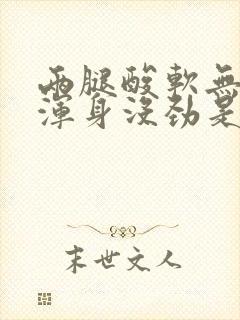 兩腿酸軟無
渾身沒勁是
末世文人